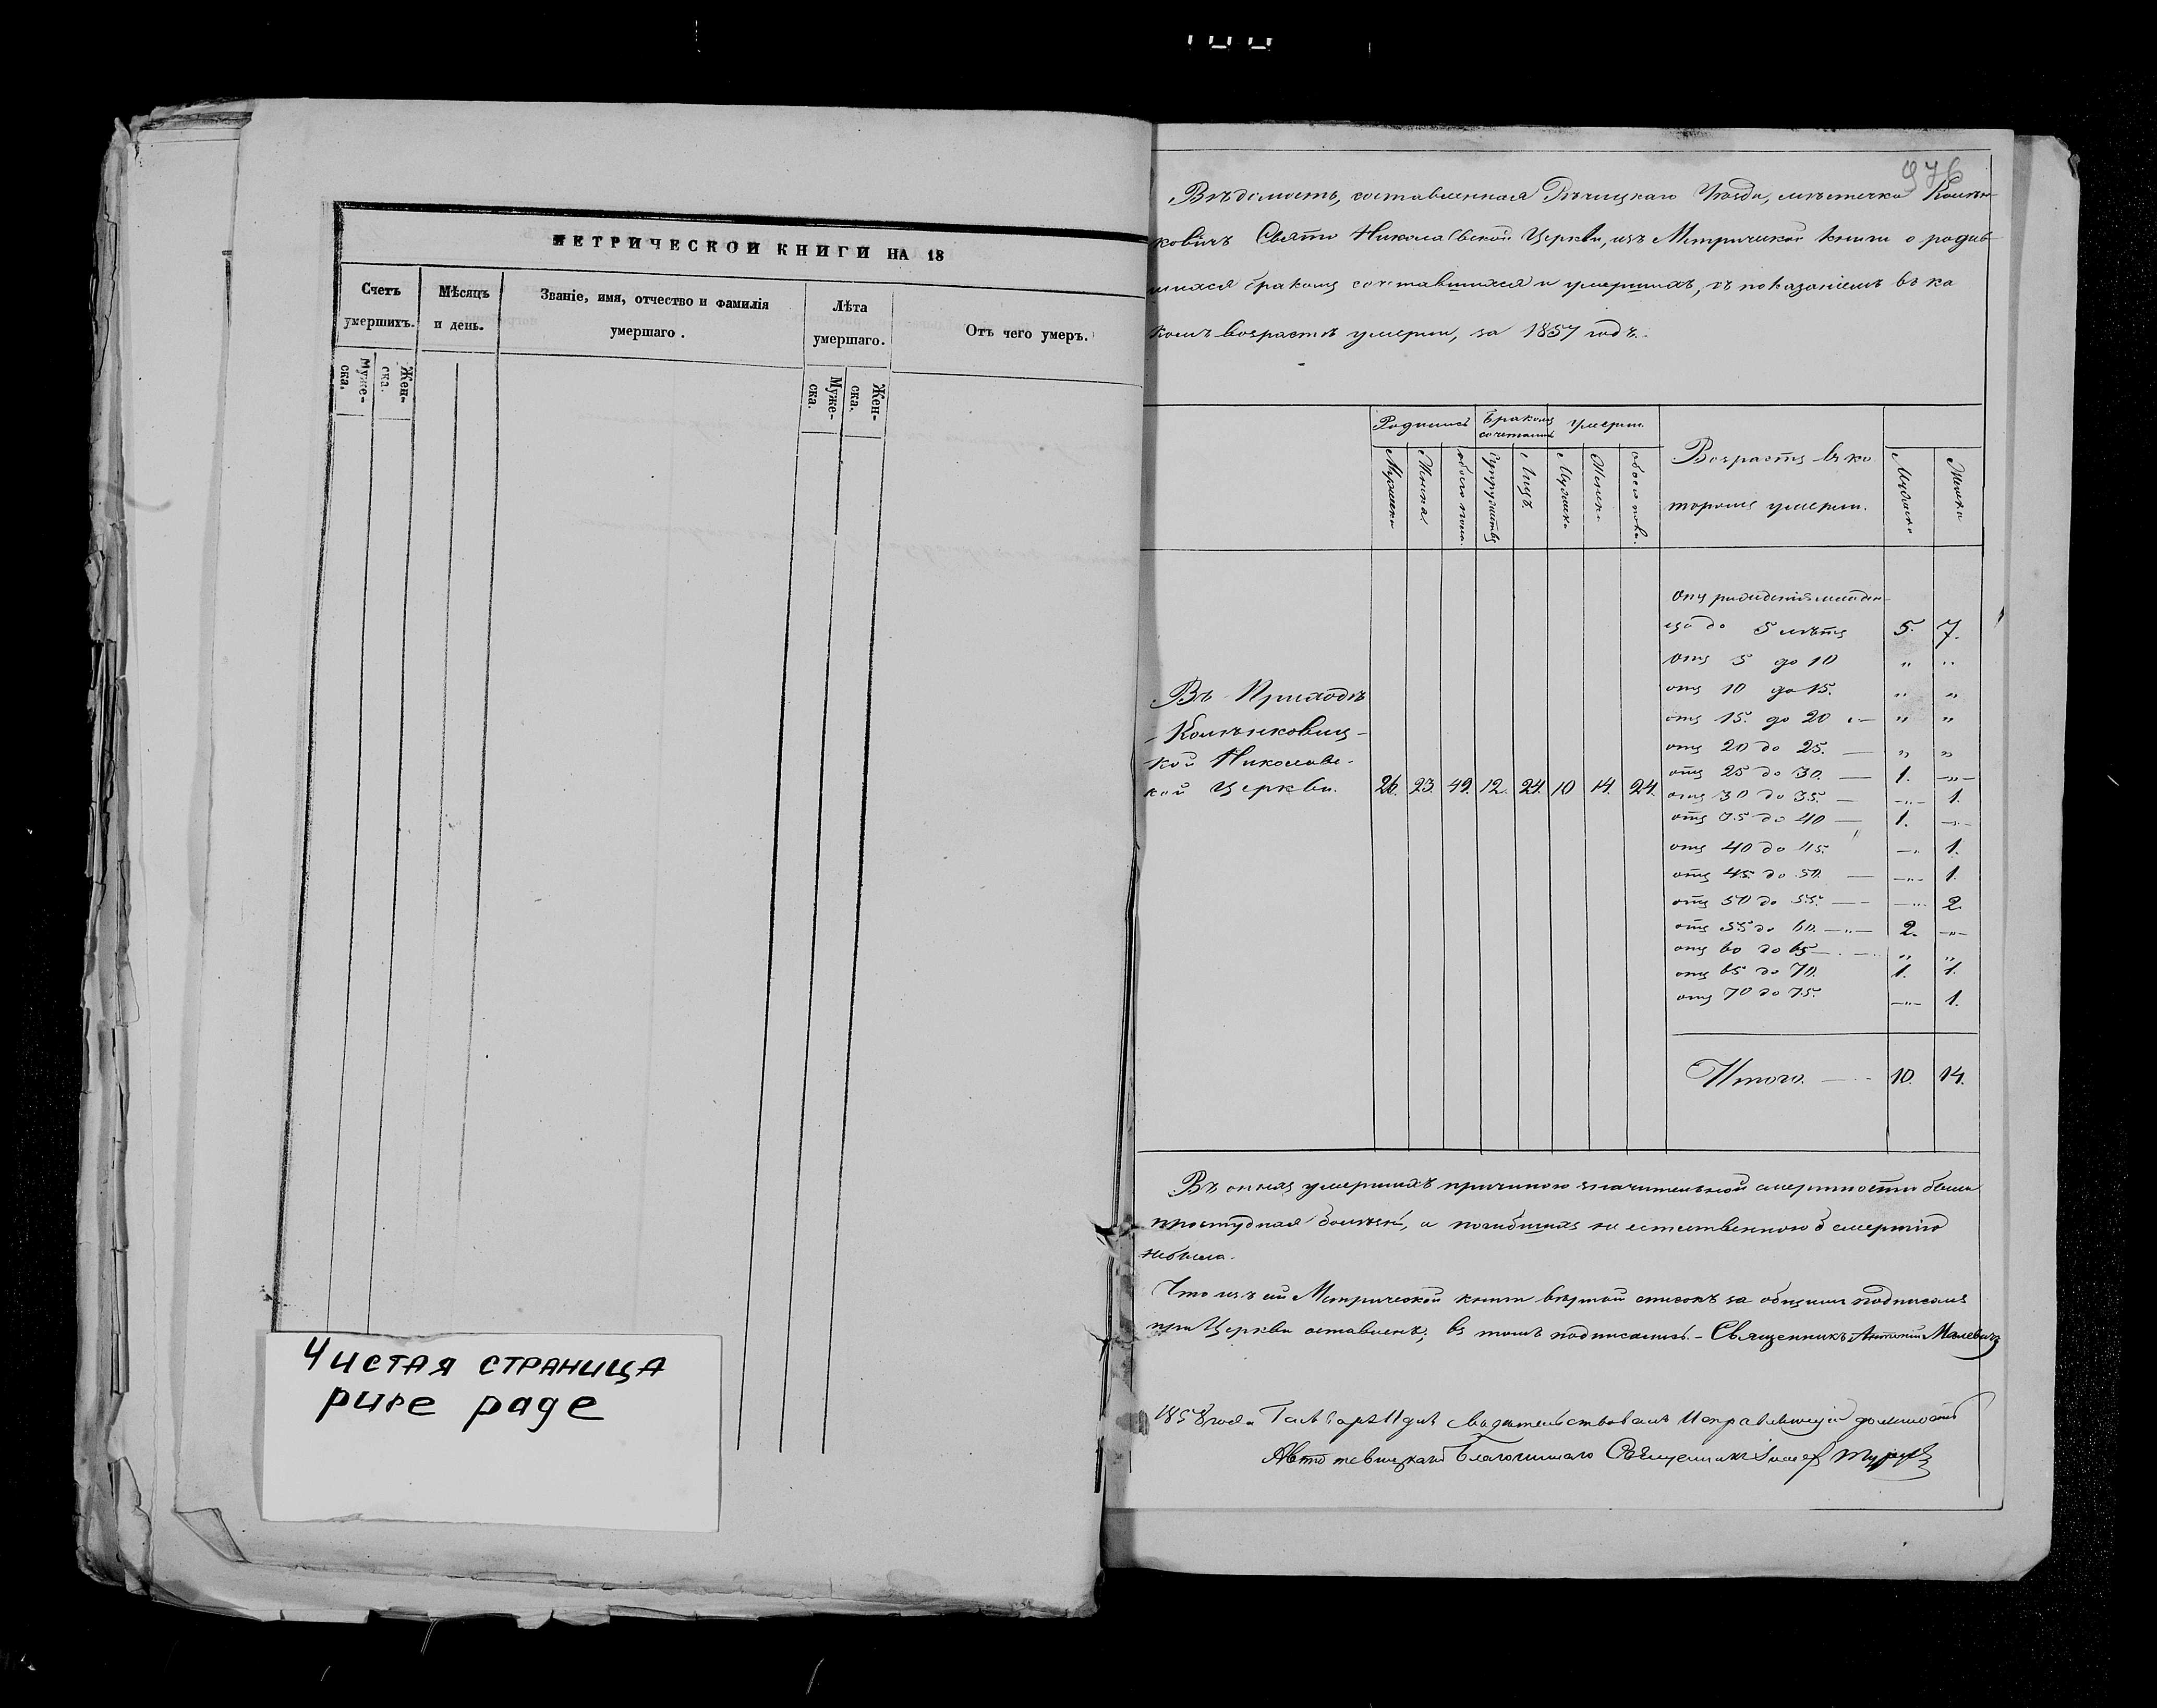 МЕТРИЧЕСКОЙ КНИГИ НА 18
Счетъ умершихъ.
Мѣсяцъ и день.
Званіе, имя, отчество и фамилія умершаго.
Лѣта умершаго.
Отъ чего умеръ.
Муже-ска.
Жен-ска.
Муже-ска.
Жен-ска.
Чистая страница
pure page
976
Вѣдомость, составленная Рѣчицкаго Уѣзда, мѣстечка
ковичъ Свято Николаевской Церкви, изъ Метрической книги о родив
шихся бракомъ сочетавшихся и умершихъ, съ показаніемъ въ ка
комъ возрастѣ умерли, за 1857 годъ.
Родились
Бракомъ сочетались
Умерли
Возрастъ въ ко
торомъ умерли.
Мужеска
Женска
обоего пола.
Супружествъ
Лицъ.
Мужеска
Женска
обоего пола.
Мужеска
Женска
Отъ рожденія младен
ца до 5 лѣтъ 5. 7.
отъ 5 до 10 " "
отъ 10 до 15. " "
отъ 15. до 20 — " "
отъ 20 до 25. — " "
отъ 25 до 30. — 1. —"—
отъ 30 до 35. — —"— 1.
отъ 35 до 40 — 1. —"—
отъ 40 до 45. —" 1.
отъ 45 до 50. — —"— 1.
отъ 50 до 55. — —" 2.
отъ 55 до 60. —"— 2. —"—
отъ 60 до 65 — " "
отъ 65 до 70. 1. 1.
отъ 70 до 75. —"— 1.
Въ Приходѣ
кой Николаевс-
кой Церкви. 26. 23. 49. 12. 24. 10 14. 24.
Итого. — 10. 14.
Въ оныхъ умершихъ причиною значительной смертности была
простудная болѣзнь, а погибшихъ не естественною смертію
небыло.
Что изъ сей Метрической книги вѣрной списокъ за общимъ подписомъ
при Церкви оставленъ; въ томъ подписались. - Священникъ Антоній Малевичъ
1858 года свидѣтельствовалъ Исправляющій должность
Благочиннаго Священникъ